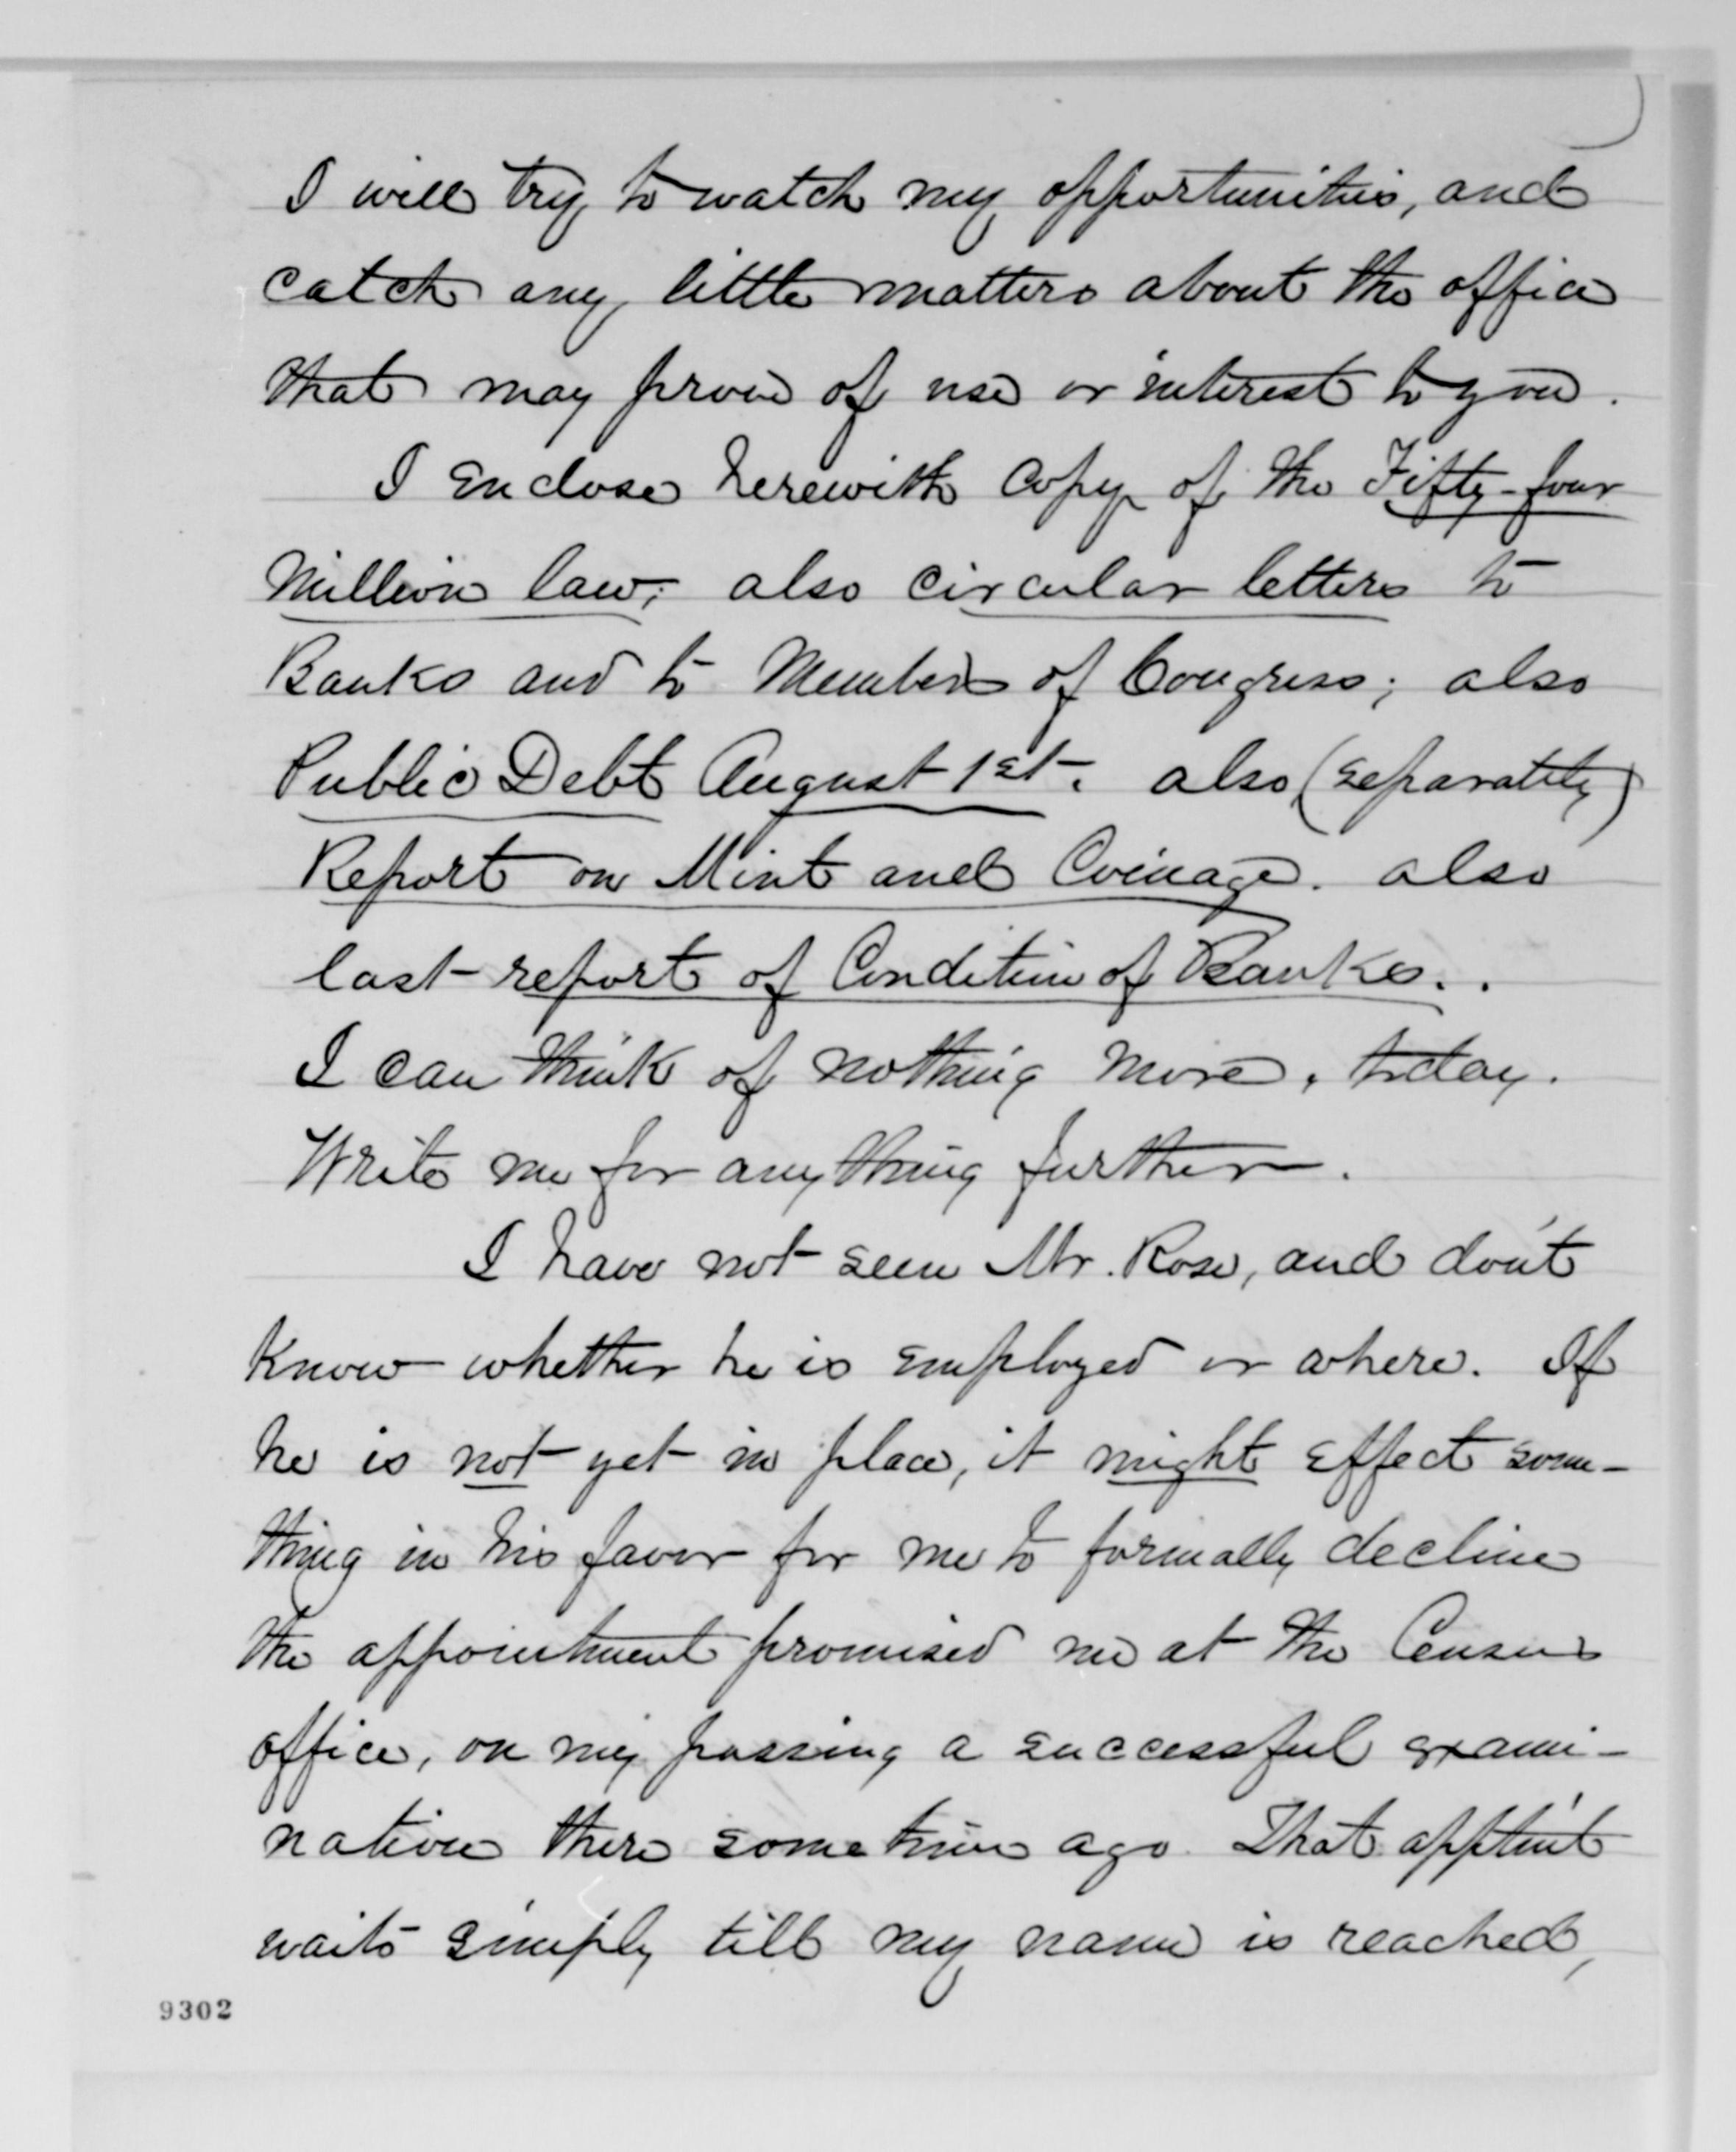 I will try to watch my opportunities, and
catch any little matters about the office
that may prove of use or interest to you.
I enclose herewith copy of the Fifty-four
Million law; also circular letters to
Banks and to Members of Congress; also
Public Debt August 1st; also (separately)
Report on Mint and Coinage. also
last report of Condition of Banks..
I can think of nothing more, today.
Write me for anything further.
I have not seen Mr. Rose, and don't
know whether he is employed or where. If
he is not yet in place, it might effect some-
thing in his favor for me to formally decline
the appointment promised me at the Census
office, on my passing a successful exami-
nation there some time ago. That appt'mt
waits simply till my name is reached,
9302